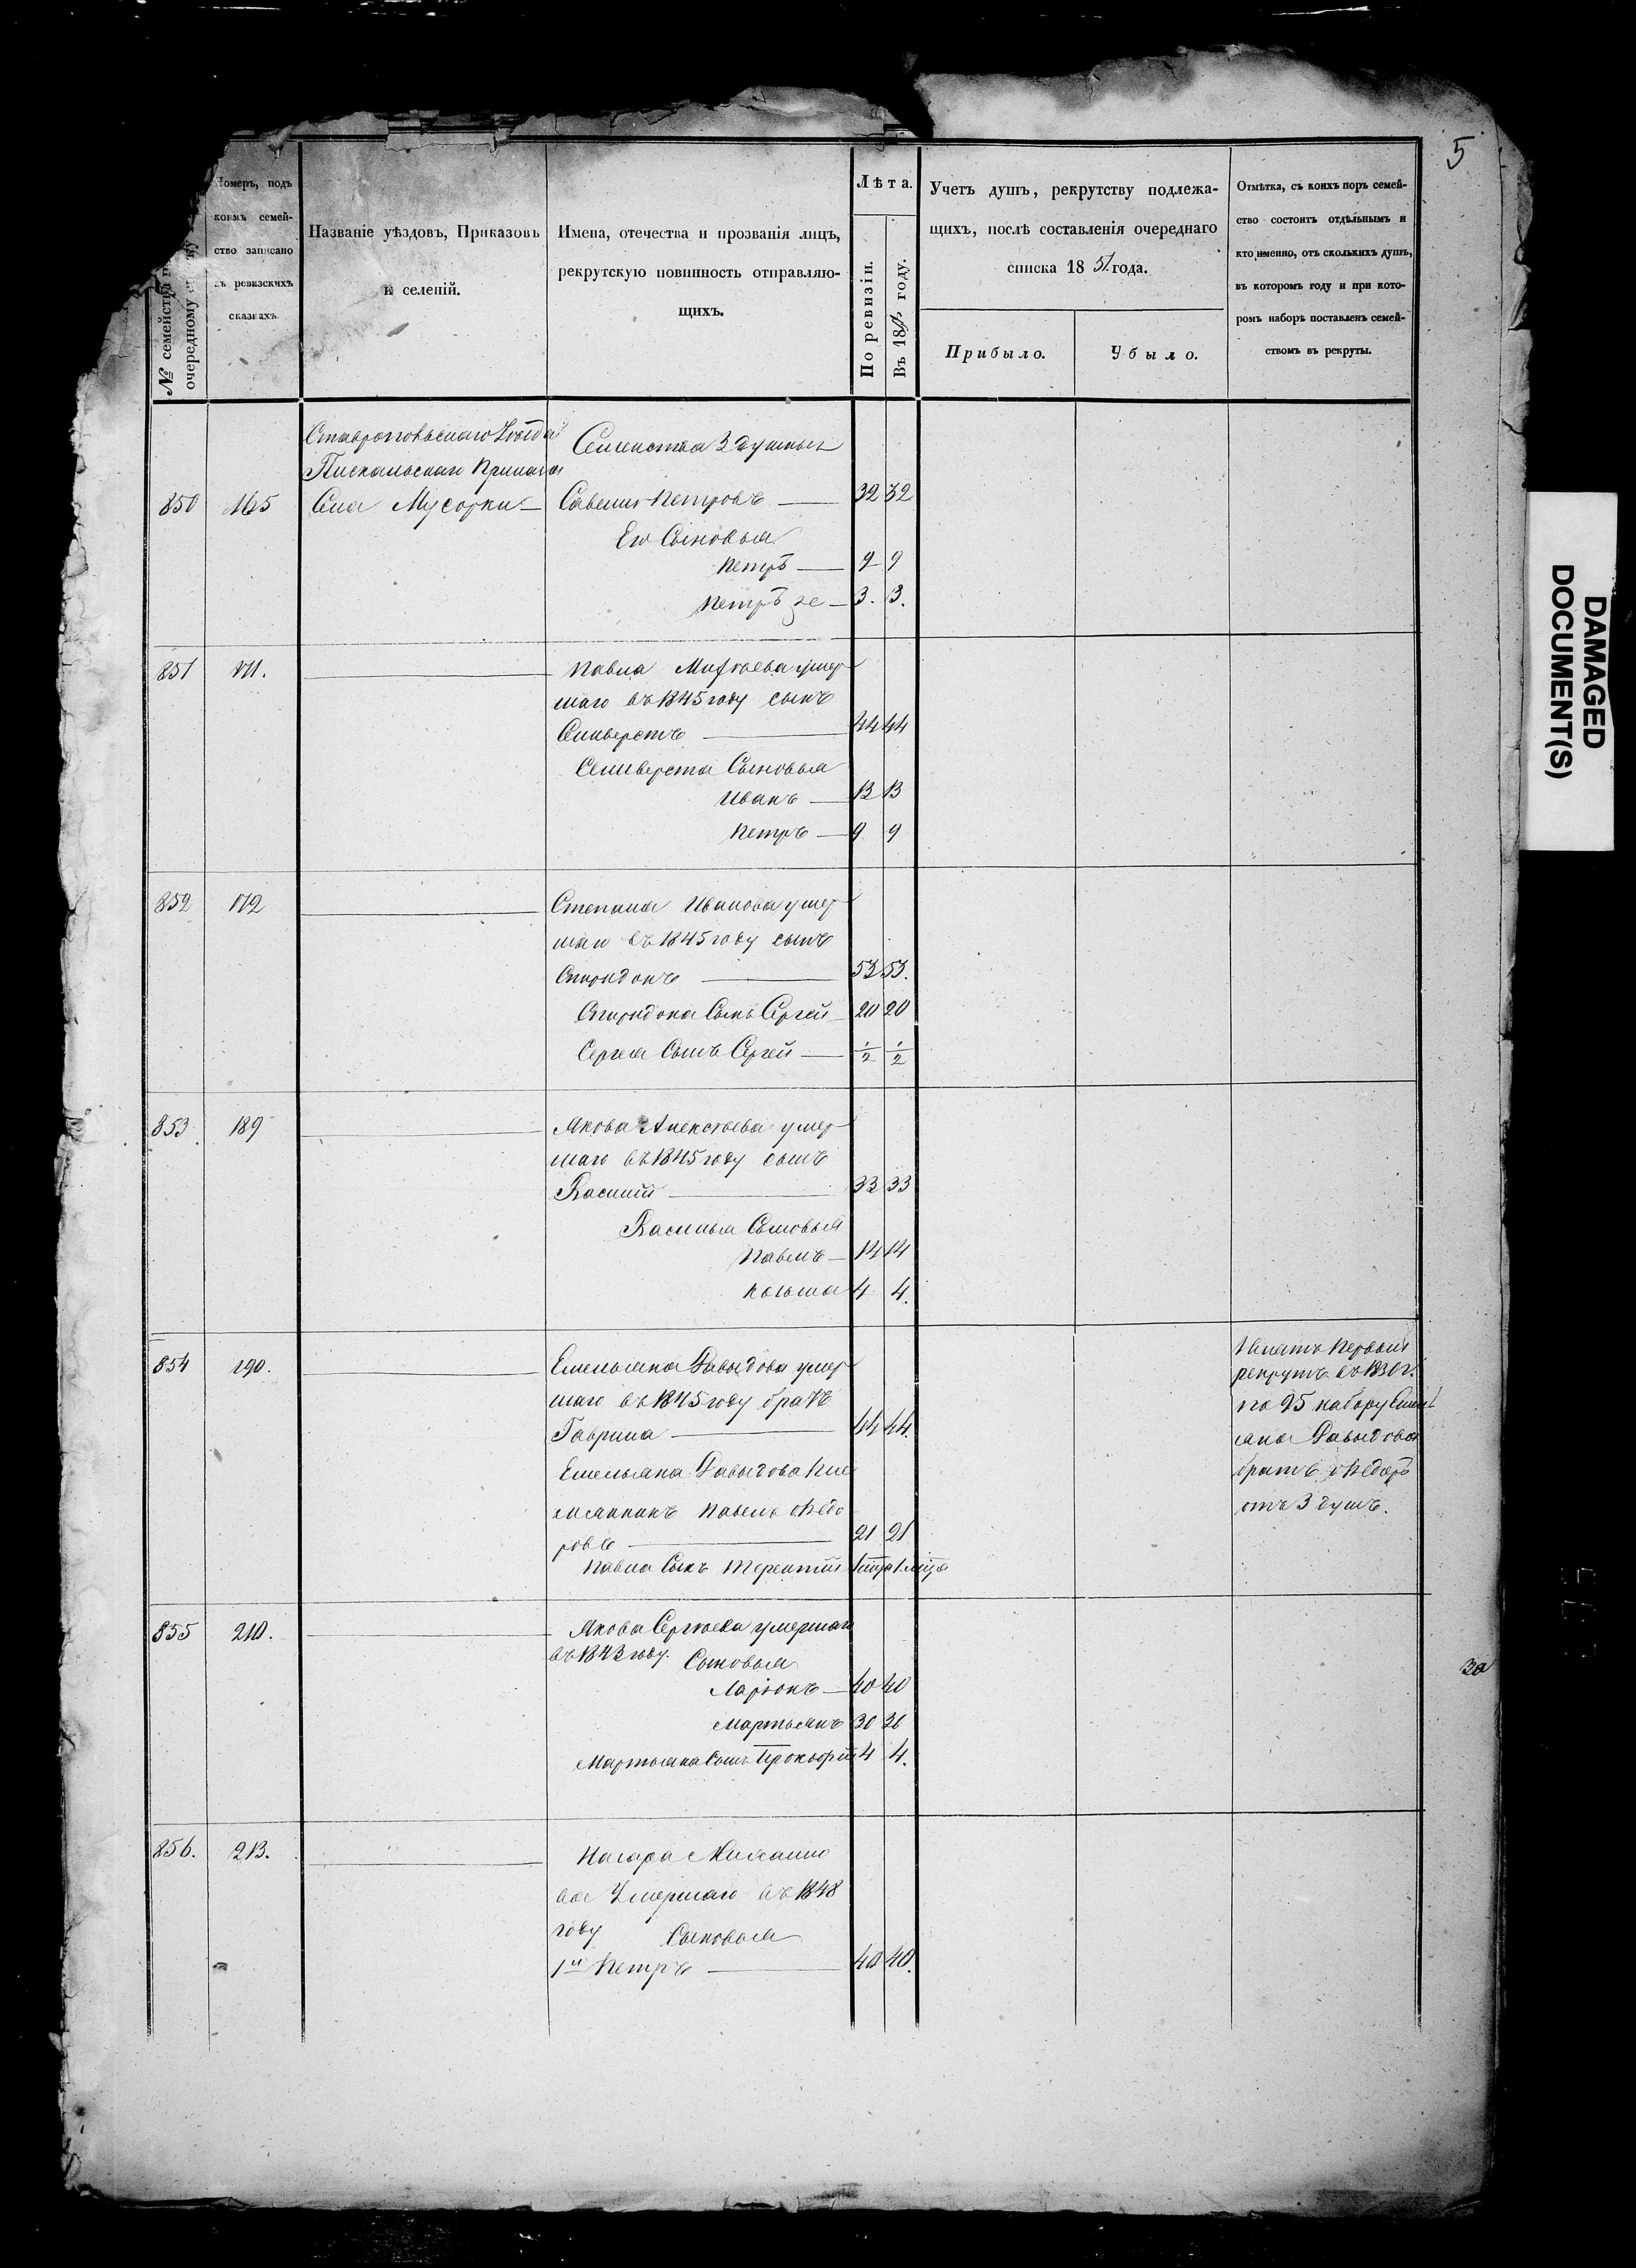 5
№ семейства
очередному
Номеръ, подъ
коимъ семей-
ство записано
въ ревизскихъ
сказкахъ.
Названіе уѣздовъ, Приказовъ
и селеній.
Имена, отечества и прозванія лицъ,
рекрутскую повинность отправляю-
щихъ.
Лѣта.
По ревизіи.
Въ 18 году.
Учетъ душъ, рекрутству подлежа-
щихъ, послѣ составленія очереднаго
списка 18 51 года.
Прибыло.
Убыло.
Отмѣтка, съ коихъ поръ семей-
ство состоитъ отдѣльнымъ и
кто именно, отъ сколькихъ душъ,
въ которомъ году и при кото-
ромъ наборѣ поставленъ семей-
ствомъ въ рекруты.
Ставропольскаго Уѣзда
Пискальскаго Приказа
Семейства 3 душныя
850 165 Села Мусорки — Савелий Петровъ — 32 32
Его Сыновья
Петръ — 9 9
Петръ же — 3. 3.
851 171. Павла Матвѣева умер
шаго въ 1845 году сынъ
Селиверстъ — 44 44
Селиверста Сыновья
Иванъ — 13 13
Петръ — 9 9
852 172 Степана Иванова умер
шаго въ 1845 году сынъ
Спиридонъ — 53 53.
Спиридона Сынъ Сергей 20 20
Сергея Сынъ Сергей — 1/2 1/2
853 189 Якова Алексѣева умер
шаго въ 1845 году сынъ
Василий — 33 33
Василья Сыновья
Павелъ — 14 14
Козьма 4 4.
854 190. Емельяна Давыдова умер
шаго въ 1845 году братъ
Гаврила — 44 44.
Емельяна Давыдова пле
мянникъ Павелъ Ѳедо
ровъ — 21 21
Павла Сынъ Терентий
первый
рекрутъ въ 1830 г.
по 95 набору Емел
яна Давыдова
братъ Ѳедоръ
отъ 3 душъ.
855 210. Якова Сергѣева умершаго
въ 1843 году. Сыновья
Ларіонъ — 40 40
Мартьянъ 30 30
Мартьяна Сынъ Прокофий 4 4.
856. 213. Назара
ва Умершаго въ 1848
году Сыновья
1й Петръ — 40 40.
DAMAGED
DOCUMENT(S)